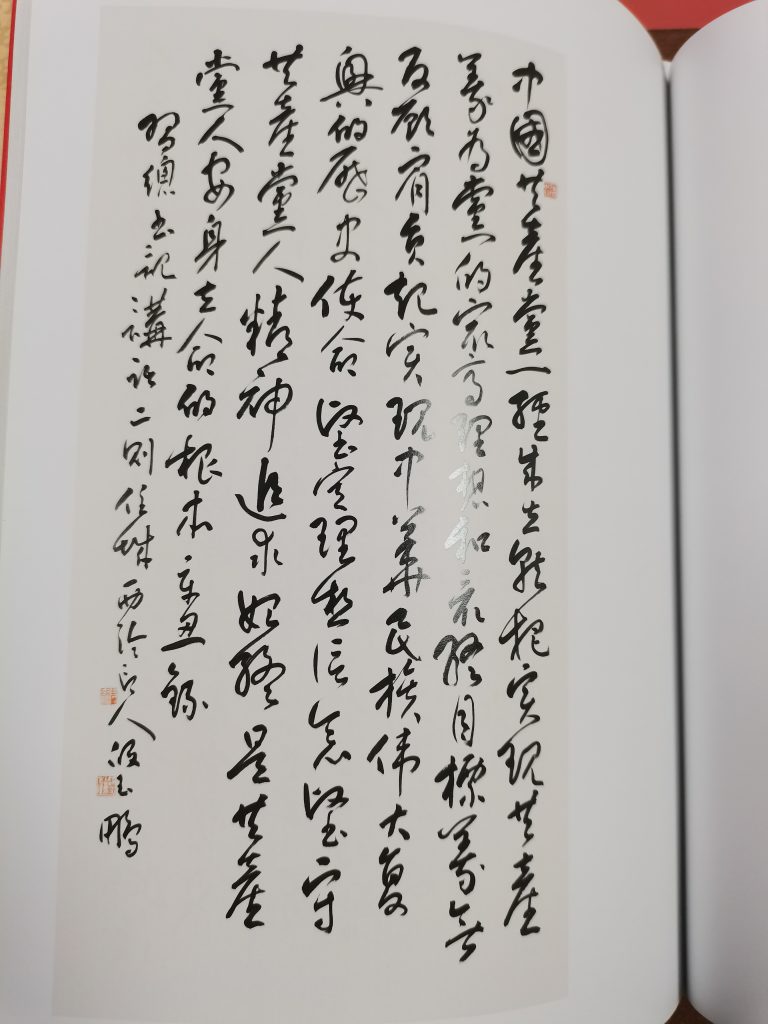 中國共產黨一經成立就把实现共產
義为黨的最高理想和最終目標義無
反顾肩负起实现中華民族伟大复
興的歷史使命堅定理想信念堅守
共產黨人精神追求始終是共產
黨人安身立命的根本辛丑錄
習總书記講話二则任城西泠印人段玉鵬